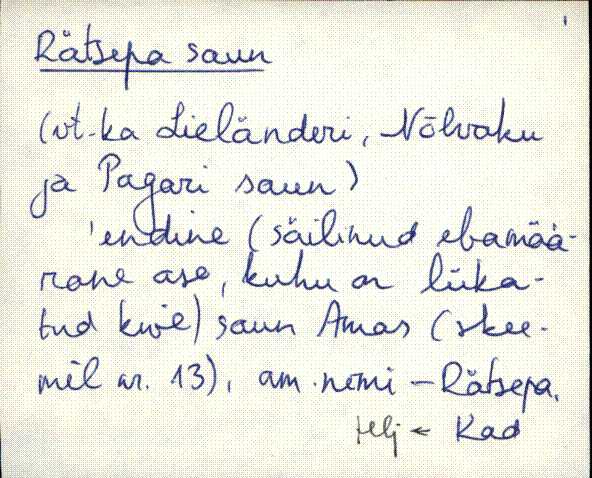 Rätsepa saun
(vt. ka Lieländeri, Nõlvaku
ja Pagari saun)
'endine (säilinud ebamää-
rane ase, kuhu on lüka-
tud kive) saun Amas (skee-
mil nr. 13), am. nimi – Rätsepa.
Helj ← Kad